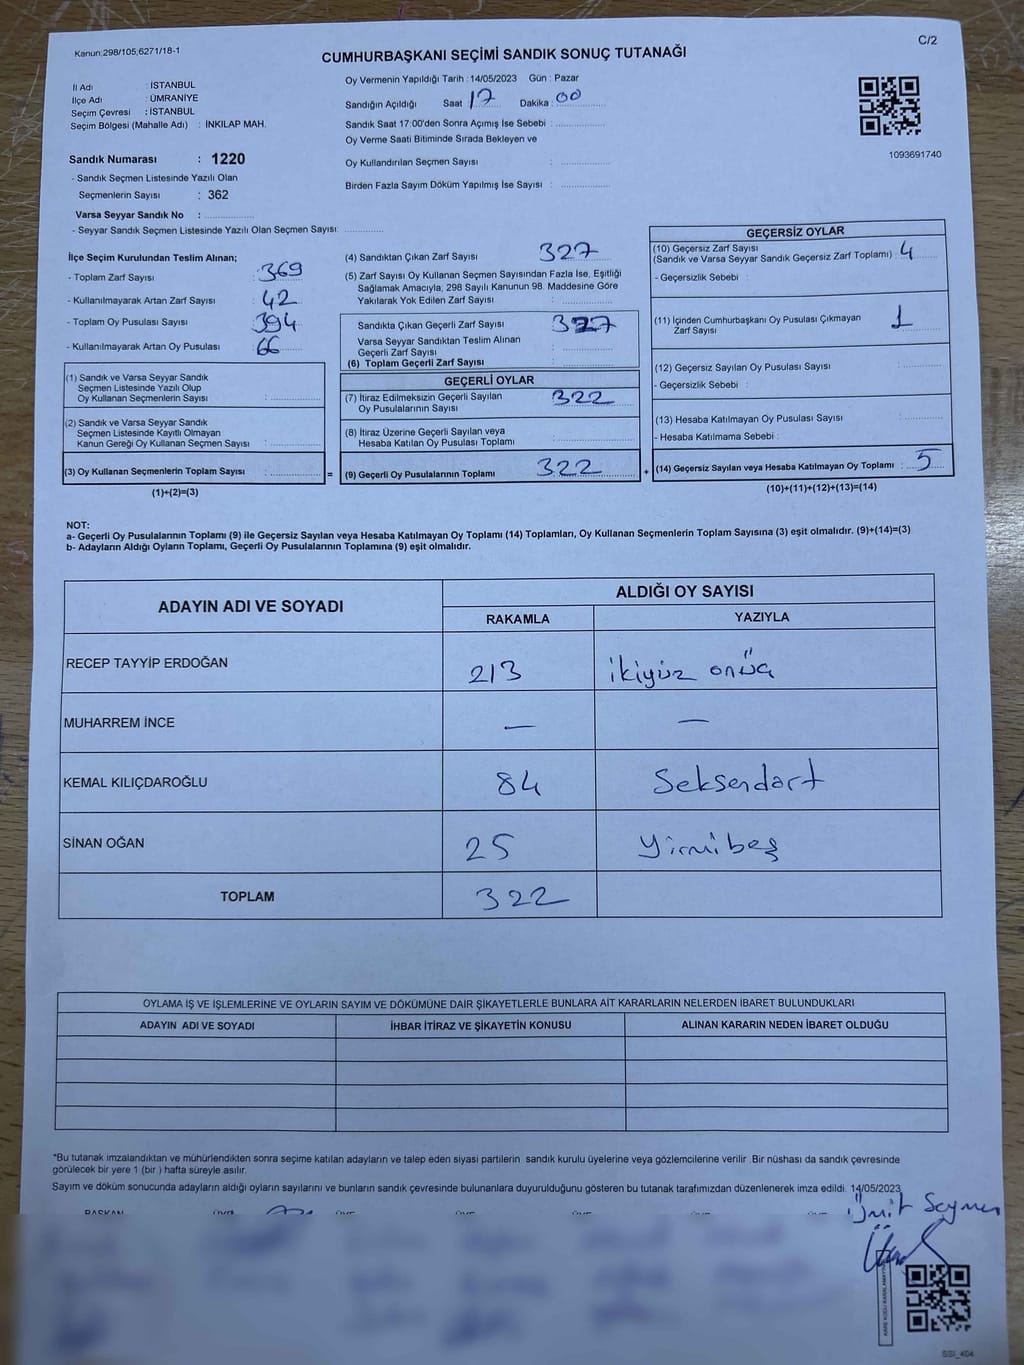 Kanun:298/105,6271/18-1
C/2
CUMHURBAŞKANI SEÇİMİ SANDIK SONUÇ TUTANAĞI
İl Adı : İSTANBUL
İlçe Adı : ÜMRANİYE
Seçim Çevresi : İSTANBUL
Seçim Bölgesi (Mahalle Adı) : İNKILAP MAH.
Sandık Numarası : 1220
- Sandık Seçmen Listesinde Yazılı Olan
Seçmenlerin Sayısı : 362
Varsa Seyyar Sandık No :
- Seyyar Sandık Seçmen Listesinde Yazılı Olan Seçmen Sayısı:
Oy Vermenin Yapıldığı Tarih : 14/05/2023 Gün : Pazar
Sandığın Açıldığı Saat 17 Dakika : 00
Sandık Saat 17:00'den Sonra Açımış İse Sebebi :
Oy Verme Saati Bitiminde Sırada Bekleyen ve
Oy Kullandırılan Seçmen Sayısı :
Birden Fazla Sayım Döküm Yapılmış İse Sayısı :
1093691740
İlçe Seçim Kurulundan Teslim Alınan;
- Toplam Zarf Sayısı : 369
- Kullanılmayarak Artan Zarf Sayısı : 42
- Toplam Oy Pusulası Sayısı : 394
- Kullanılmayarak Artan Oy Pusulası : 66
(1) Sandık ve Varsa Seyyar Sandık
Seçmen Listesinde Yazılı Olup
Oy Kullanan Seçmenlerin Sayısı :
(2) Sandık ve Varsa Seyyar Sandık
Seçmen Listesinde Kayıtlı Olmayan
Kanun Gereği Oy Kullanan Seçmen Sayısı :
(3) Oy Kullanan Seçmenlerin Toplam Sayısı :
(1)+(2)=(3)
(4) Sandıktan Çıkan Zarf Sayısı : 327
(5) Zarf Sayısı Oy Kullanan Seçmen Sayısından Fazla İse, Eşitliği
Sağlamak Amacıyla, 298 Sayılı Kanunun 98. Maddesine Göre
Yakılarak Yok Edilen Zarf Sayısı :
Sandıkta Çıkan Geçerli Zarf Sayısı : 327
Varsa Seyyar Sandıktan Teslim Alınan
Geçerli Zarf Sayısı :
(6) Toplam Geçerli Zarf Sayısı :
GEÇERLİ OYLAR
(7) İtiraz Edilmeksizin Geçerli Sayılan
Oy Pusulalarının Sayısı : 322
(8) İtiraz Üzerine Geçerli Sayılan veya
Hesaba Katılan Oy Pusulası Toplamı :
= (9) Geçerli Oy Pusulalarının Toplamı : 322
GEÇERSİZ OYLAR
(10) Geçersiz Zarf Sayısı
(Sandık ve Varsa Seyyar Sandık Geçersiz Zarf Toplamı) : 4
- Geçersizlik Sebebi :
(11) İçinden Cumhurbaşkanı Oy Pusulası Çıkmayan
Zarf Sayısı : 1
(12) Geçersiz Sayılan Oy Pusulası Sayısı :
- Geçersizlik Sebebi :
(13) Hesaba Katılmayan Oy Pusulası Sayısı :
- Hesaba Katılmama Sebebi :
+ (14) Geçersiz Sayılan veya Hesaba Katılmayan Oy Toplamı : 5
(10)+(11)+(12)+(13)=(14)
NOT:
a- Geçerli Oy Pusulalarının Toplamı (9) ile Geçersiz Sayılan veya Hesaba Katılmayan Oy Toplamı (14) Toplamları, Oy Kullanan Seçmenlerin Toplam Sayısına (3) eşit olmalıdır. (9)+(14)=(3)
b- Adayların Aldığı Oyların Toplamı, Geçerli Oy Pusulalarının Toplamına (9) eşit olmalıdır.
ADAYIN ADI VE SOYADI ALDIĞI OY SAYISI
RAKAMLA YAZIYLA
RECEP TAYYİP ERDOĞAN 213 ikiyüz onüç
MUHARREM İNCE — —
KEMAL KILIÇDAROĞLU 84 Seksendört
SİNAN OĞAN 25 Yirmibeş
TOPLAM 322
OYLAMA İŞ VE İŞLEMLERİNE VE OYLARIN SAYIM VE DÖKÜMÜNE DAİR ŞİKAYETLERLE BUNLARA AİT KARARLARIN NELERDEN İBARET BULUNDUKLARI
ADAYIN ADI VE SOYADI İHBAR İTİRAZ VE ŞİKAYETİN KONUSU ALINAN KARARIN NEDEN İBARET OLDUĞU
*Bu tutanak imzalandıktan ve mühürlendikten sonra seçime katılan adayların ve talep eden siyasi partilerin sandık kurulu üyelerine veya gözlemcilerine verilir .Bir nüshası da sandık çevresinde
görülecek bir yere 1 (bir ) hafta süreyle asılır.
Sayım ve döküm sonucunda adayların aldığı oyların sayılarını ve bunların sandık çevresinde bulunanlara duyurulduğunu gösteren bu tutanak tarafımızdan düzenlenerek imza edildi. 14/05/2023
Ümit Seymen
BAŞKAN
SSI_404